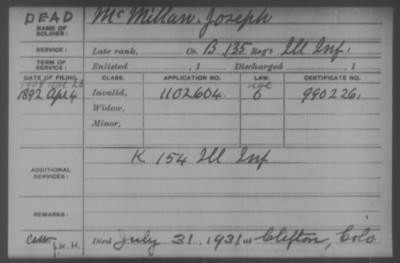 DEAD
NAME OF SOLDIER: McMillan. Joseph
SERVICE: Late rank, Co. B, 135 Reg't Ill Inf.
TERM OF SERVICE: Enlisted , 1 Discharged , 1
DATE OF FILING. CLASS. APPLICATION NO. LAW. CERTIFICATE NO.
1908 age
1892 Apl 4 Invalid, 1102604. 6 990226.
Widow,
Minor,
K 154 Ill Inf
ADDITIONAL SERVICES:
REMARKS:
J.W.H. Died July 31, 1931 at Clifton, Colo